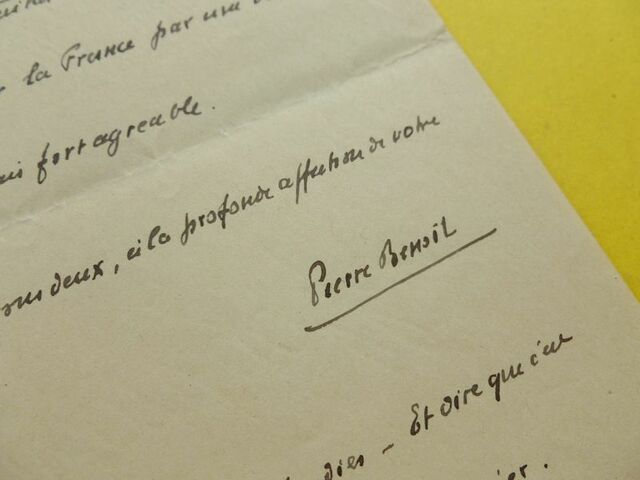 la France par une
fort agreable.
deux, à la profonde affection de votre
Pierre Benoit
dies - Et dire que c'est